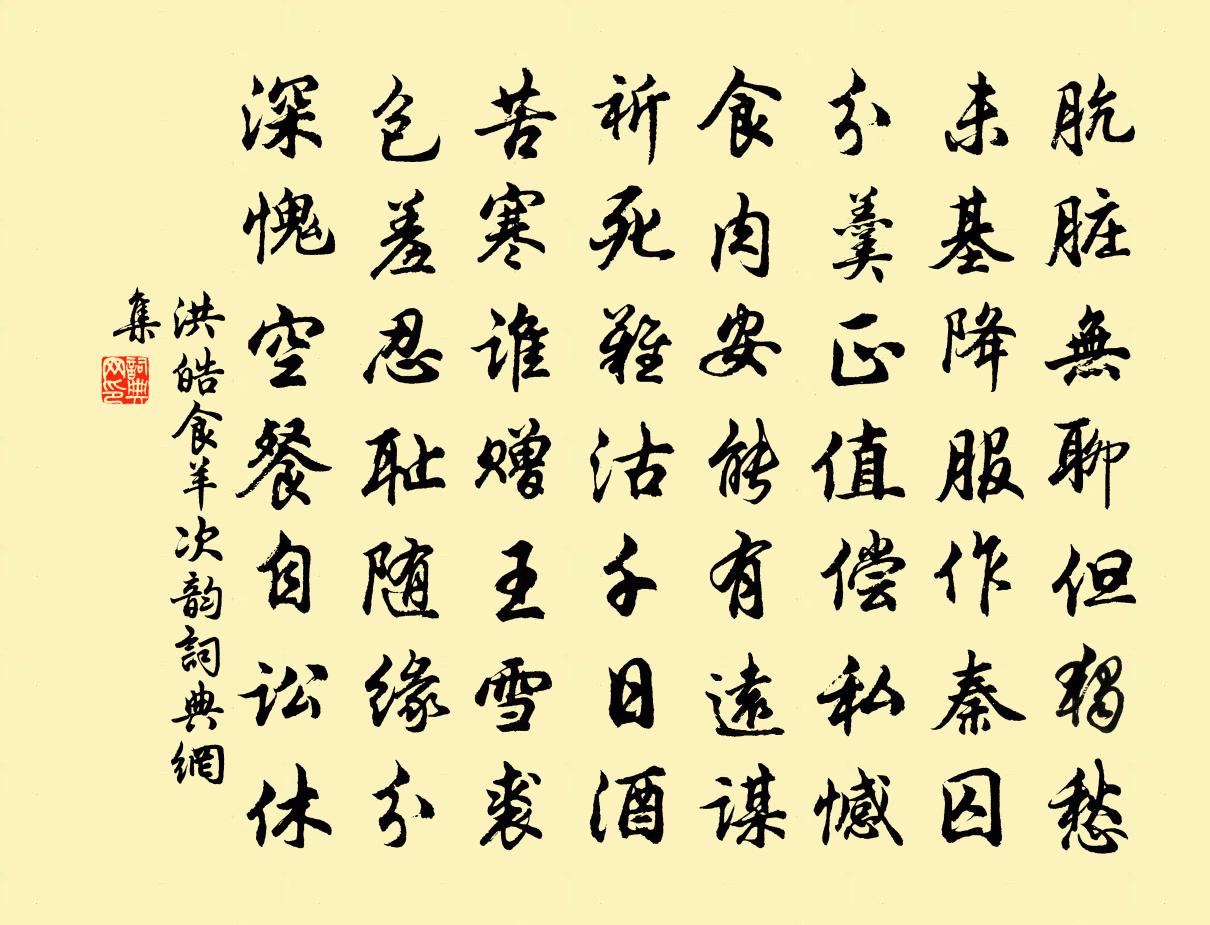 肮脏無聊但獨愁
未甚降服作秦囚
分羹正值偿私憾
食肉安能有遠谋
祈死難沽千日酒
苦寒谁赠王雪裘
包羞忍耻随缘分
深愧空餐自讼休
洪皓食羊次韵詞典網
集
詞典網印